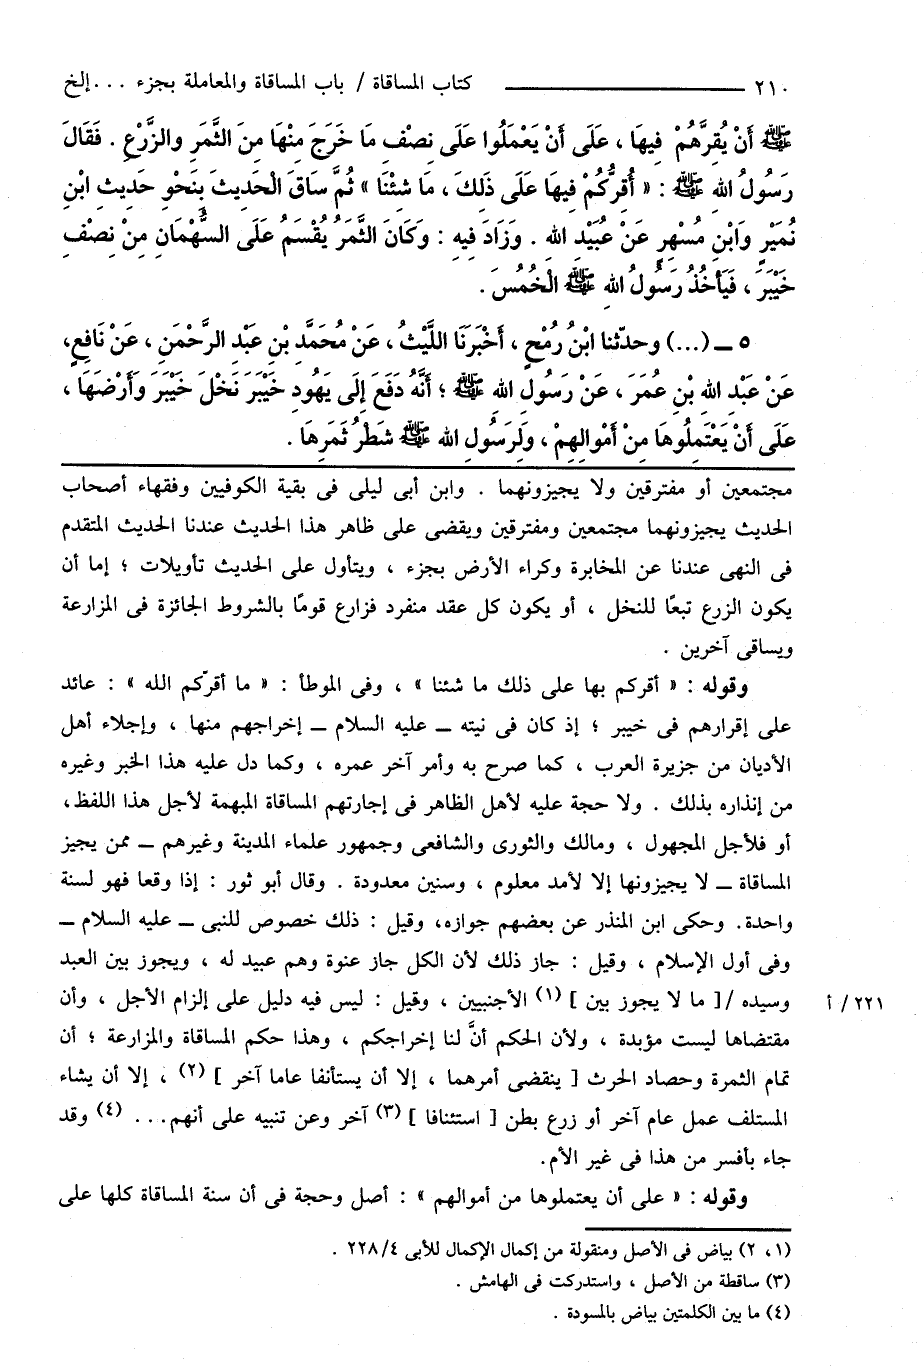 ٢١٠ ــــــــــ كتاب المساقاة / باب المساقاة والمعاملة بجزء ... إلخ
ﷺ أَنْ يُقِرَّهُمْ فِيهَا ، عَلَى أَنْ يَعْمَلُوا عَلَى نِصْفِ مَا خَرَجَ مِنْهَا مِنَ الثَّمَرِ والزَّرْعِ . فَقَالَ
رَسُولُ اللهِ ﷺ : « أُقِرُّكُمْ فِيهَا عَلَى ذَلكَ ، مَا شئْنَا » ثُمَّ سَاقَ الْحَديثَ بِنَحْوِ حَديثِ ابْنِ
نُمَيْرٍ وَابْنِ مُسْهِرٍ عَنْ عُبَيْدِ اللهِ . وَزَادَ فيهِ : وَكَانَ الثَّمَرُ يُقْسَمُ عَلَى السُّهْمَانِ مِنْ نِصْفِ
خَيْبَرَ ، فَيَأخُذُ رَسُولُ اللهِ ﷺ الْخُمُسَ .
٥ ــ (...) وحدّثنا ابْنُ رُمْحٍ ، أَخْبَرَنَا اللَّيْثُ ، عَنْ مُحَمَّدِ بْنِ عَبْدِ الرَّحْمَنِ ، عَنْ نَافِعٍ،
عَنْ عَبْدِ اللهِ بْنِ عُمَرَ ، عَنْ رَسُولِ اللهِ ﷺ ؛ أَنَّهُ دَفَعَ إِلَى يَهُودِ خَيْبَرَ نَخْلَ خَيْبَرَ وَأَرْضَهَا ،
عَلَى أَنْ يَعْتَمِلُوهَا مِنْ أَمْوالِهِمْ ، ولِرَسُولِ اللهِ ﷺ شَطْرُ ثَمَرِهَا .
مجتمعين أو مفترقين ولا يجيزونهما . وابن أبى ليلى فى بقية الكوفيين وفقهاء أصحاب
الحديث يجيزونهما مجتمعين ومفترقين ويقضى على ظاهر هذا الحديث عندنا الحديث المتقدم
فى النهى عندنا عن المخابرة وكراء الأرض بجزء ، ويتأول على الحديث تأويلات ؛ إما أن
يكون الزرع تبعًا للنخل ، أو يكون كل عقد منفرد فزارع قومًا بالشروط الجائزة فى المزارعة
ويساقى آخرين .
وقوله : « أقركم بها على ذلك ما شئنا » ، وفى الموطأ : « ما أقرّكم الله » : عائد
على إقرارهم فى خيبر ؛ إذ كان فى نيته ــ عليه السلام ــ إخراجهم منها ، وإجلاء أهل
الأديان من جزيرة العرب ، كما صرح به وأمر آخر عمره ، وكما دل عليه هذا الخبر وغيره
من إنذاره بذلك . ولا حجة عليه لأهل الظاهر فى إجارتهم المساقاة المبهمة لأجل هذا اللفظ،
أو فلأجل المجهول ، ومالك والثورى والشافعى وجمهور علماء المدينة وغيرهم ــ ممن يجيز
المساقاة ــ لا يجيزونها إلا لأمد معلوم ، وسنين معدودة . وقال أبو ثور : إذا وقعا فهو لسنة
واحدة. وحكى ابن المنذر عن بعضهم جوازه، وقيل : ذلك خصوص للنبى ــ عليه السلام ــ
وفى أول الإسلام ، وقيل : جاز ذلك لأن الكل جاز عنوة وهم عبيد له ، ويجوز بين العبد
وسيده /[ ما لا يجوز بين ] (١) الأجنبيين ، وقيل : ليس فيه دليل على إلزام الأجل ، وأن
٢٢١/ أ
مقتضاها ليست مؤبدة ، ولأن الحكم أنَّ لنا إخراجكم ، وهذا حكم المساقاة والمزارعة ؛ أن
تمام الثمرة وحصاد الحرث [ ينقضى أمرهما ، إلا أن يستأنفا عاما آخر ] (٢) ، إلا أن يشاء
المستلف عمل عام آخر أو زرع بطن [ استئنافا ] (٣) آخر وعن تنبيه على أنهم... (٤) وقد
جاء بأفسر من هذا فى غير الأم.
وقوله : « على أن يعتملوها من أموالهم » : أصل وحجة فى أن سنة المساقاة كلها على
(١، ٢) بياض فى الأصل ومنقولة من إكمال الإكمال للأبى ٢٢٨/٤ .
(٣) ساقطة من الأصل ، واستدركت فى الهامش .
(٤) ما بين الكلمتين بياض بالمسودة .